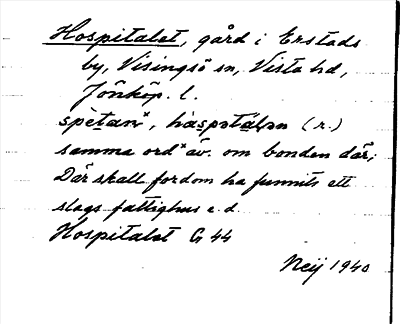 Hospitalet, gård i Erstads
by, Visingsö sn, Vista hd,
Jönköp. l.
spètan*, haspətáļən (r.)
samma ord* äv. om bonden där;
Där skall fordom ha funnits ett
slags fattighus e.d.
Hospitalet G 44
Neij 1940